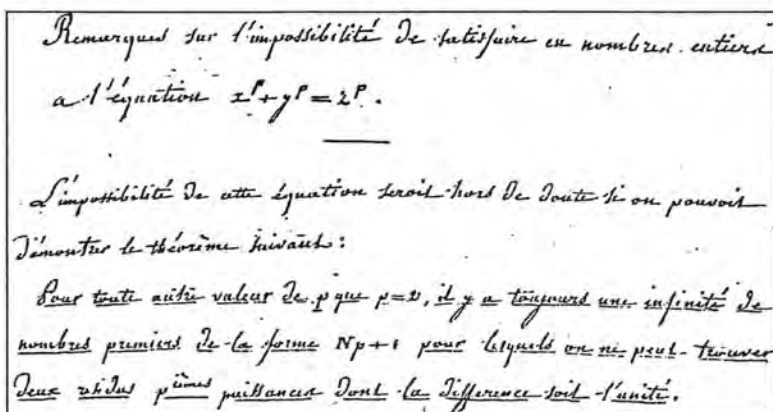 Remarques sur l'impossibilité de satisfaire en nombres entiers
a l'équation x^p + y^p = z^p.
L'impossibilité de cette équation seroit hors de doute si on pouvoit
démontrer le théorème suivant:
Pour toute autre valeur de p que p=2, il y a toujours une infinité de
nombres premiers de la forme Np+1 pour lesquels on ne peut trouver
deux résidus pièmes puissances dont la difference soit l'unité.